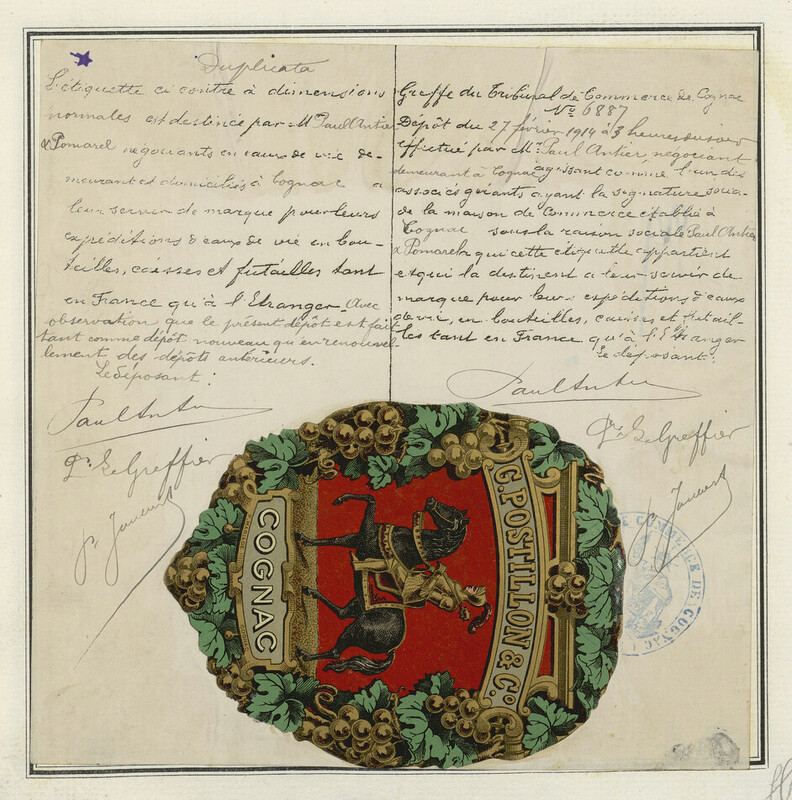 Duplicata
L'étiquette ci contre à dimensions
normales est destinée par Mrs Paul Antier
& Pomarel négociants en eaux de vie de-
meurant et domiciliés à Cognac a
leur servir de marque pour leurs
expéditions d'eaux de vie en bou-
teilles, caisses et futailles tant
en France qu'à l'Etranger. Avec
observation que le présent dépôt est fait
tant comme dépôt nouveau qu'en renouvel-
lement des dépôts antérieurs.
Le déposant:
Paul Antier
Pr. Le Greffier
Greffe du Tribunal de Commerce de Cognac
No 6887
Dépôt du 27 février 1914 à 3 heures du soir
effectué par Mr. Paul Antier négociant
demeurant à Cognac agissant comme l'un des
associés gérants ayant la signature socia-
de la maison de Commerce établie à
Cognac sous la raison sociale Paul Antier
& Pomarel a qui cette étiquette appartient
et qui la destinent a leur servir de
marque pour leurs expéditions d'eaux
de vie, en bouteilles, caisses et futail-
les tant en France qu'à l'Etranger
Le déposant:
Paul Antier
Pr. Le Greffier
G. POSTILLON & Co
COGNAC
DE COMMERCE DE COGNAC